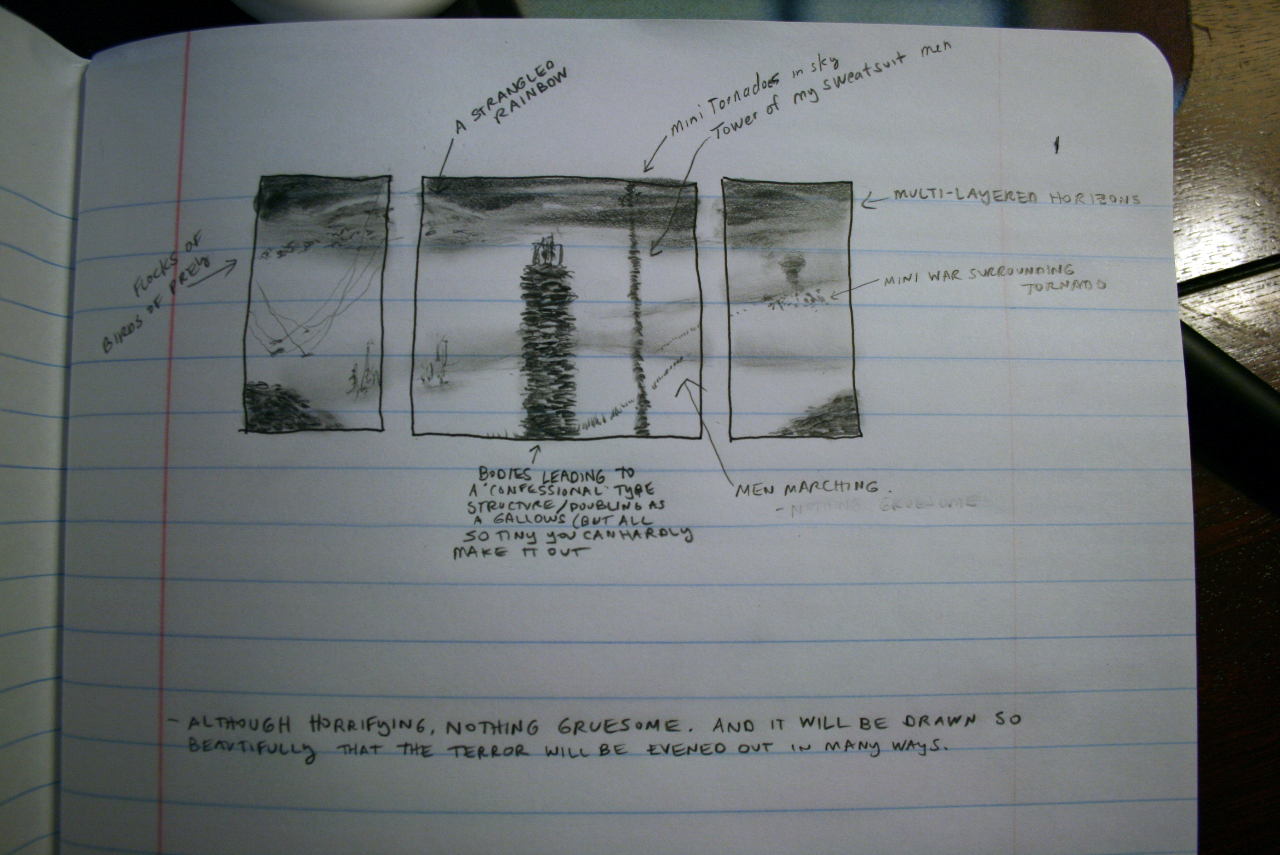 A STRANGLED
RAINBOW
Mini Tornadoes in sky
Tower of my sweatsuit men
MULTI-LAYERED HORIZONS
FLOCKS OF
BIRDS OF PREY
MINI WAR SURROUNDING
TORNADO
BODIES LEADING TO
A "CONFESSIONAL" TYPE
STRUCTURE/DOUBLING AS
A GALLOWS (BUT ALL
SO TINY YOU CAN HARDLY
MAKE IT OUT
MEN MARCHING.
- NOTHING GRUESOME
- ALTHOUGH HORRIFYING, NOTHING GRUESOME. AND IT WILL BE DRAWN SO
BEAUTIFULLY THAT THE TERROR WILL BE EVENED OUT IN MANY WAYS.